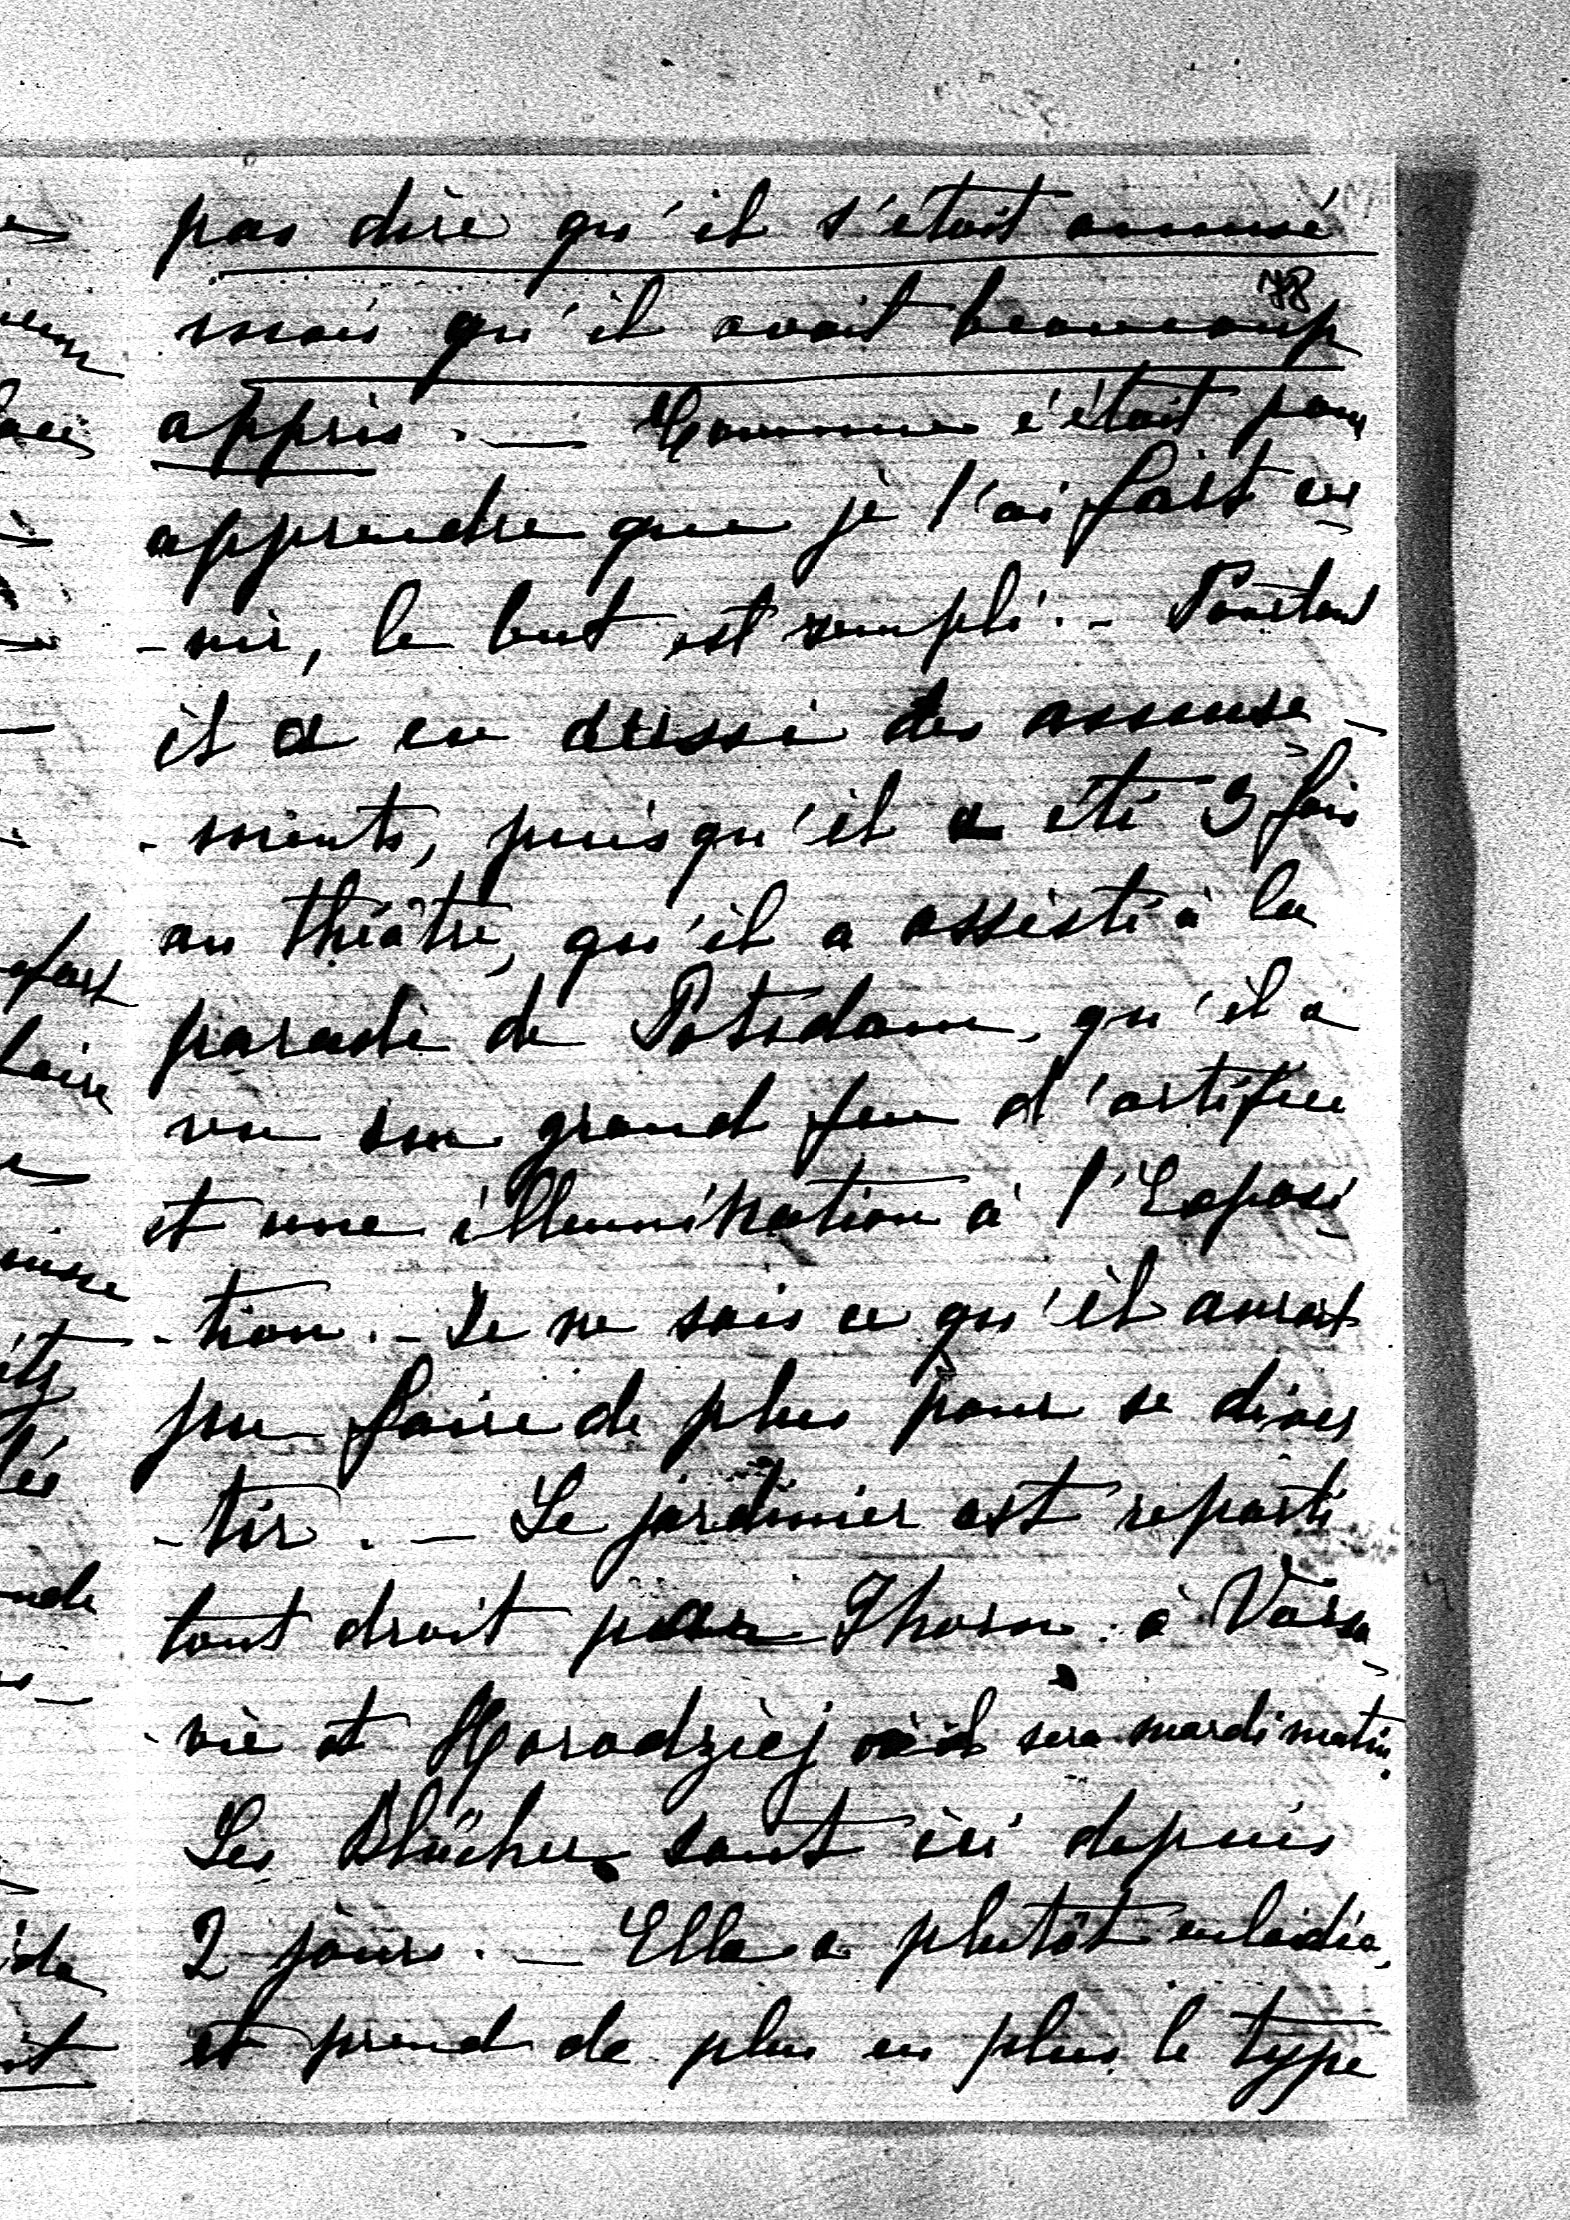 pas dire qu'il s'était amusé
78
mais qu'il avait beaucoup
appris. — Comme c'était pour
apprendre que je l'ai fait ve
-nir, le but est rempli. - Pourtant
il a eu aussi des amuse-
-ments, puisqu'il a été 3 fois
au théâtre, qu'il a assisté à la
parade de Potsdam, qu'il a
vu un grand feu d'artifice
et une illumination à l'Exposi
-tion. - Je ne sais ce qu'il aurait
pu faire de plus pour se diver
-tir. — Le jardinier est reparti
tout droit par Thorn à Varso
-vie et Horodziej où il sera mardi matin.
Les Blücher sont ici depuis
2 jours. — Elle a plutôt enlaidie,
et prend de plus en plus le type